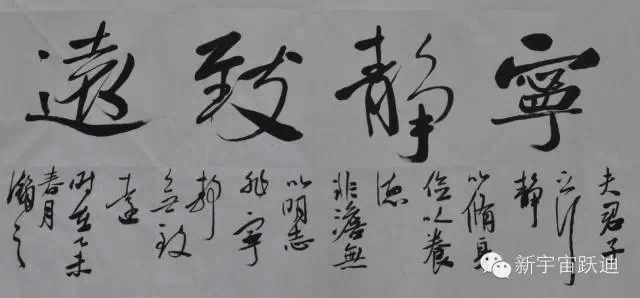 寧靜致遠
夫君子
之行
静
以脩身
儉以養
德
非澹無
以明志
非寧
靜
無致
遠
時在乙未
春月
瀚之
新宇宙跃迪